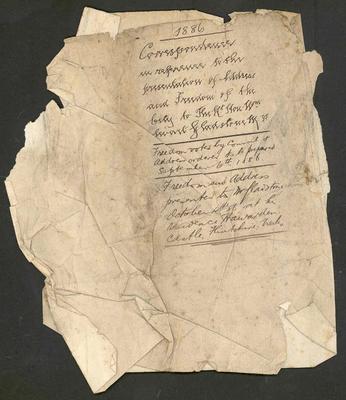 1886
Correspondence
in reference to the
presentation of Address
and Freedom of the
City to The Rt Hon Wm
Ewart Gladstone M.P.
Freedom voted by Council &
Address ordered to be prepared
September 1886
Freedom and Address
presented to Mr Gladstone
October at his
residence Hawarden
Castle, Flintshire,